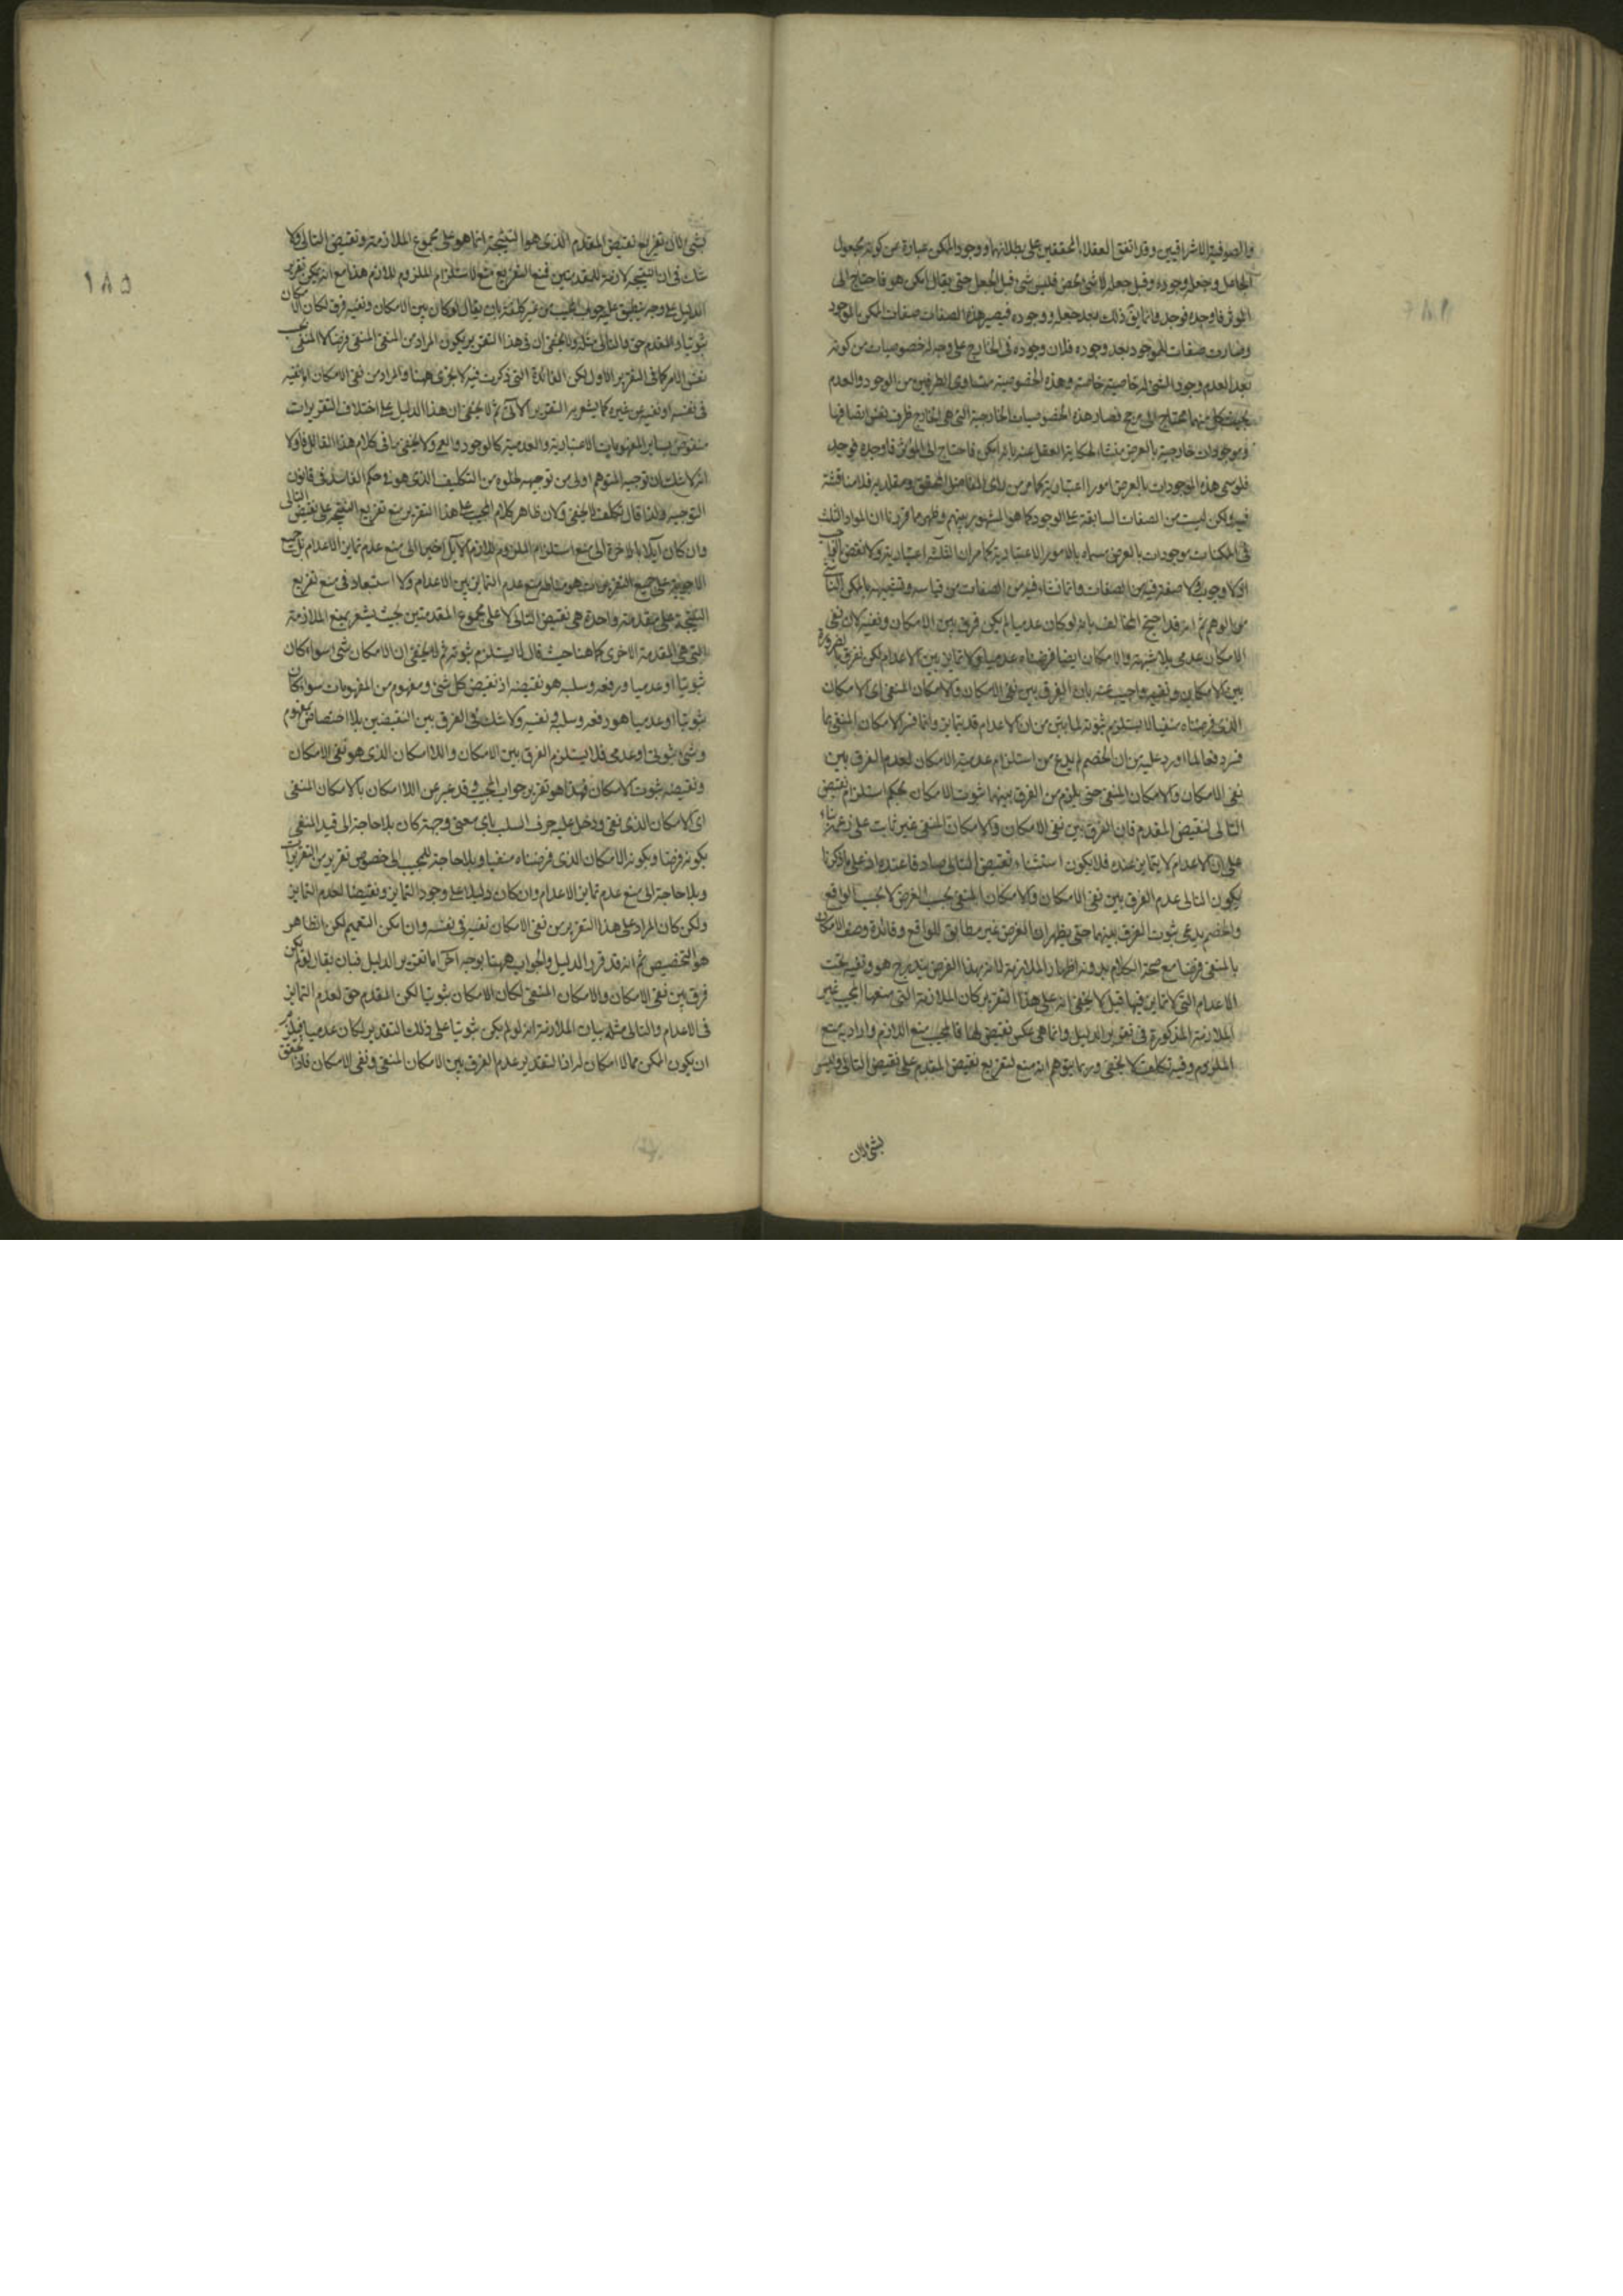 والصوفية الاشراقيين وقد اتفق العقلاء المحققين على بطلانهما ووجود الممكن عبارة من كونه مجعول
الجاعل وجعله وجوده وقبل جعله لا شئ محض فليس شئ قبل الجعل حتى يقال امكن هو فاحتاج الى
المؤثر فاوجده فوجد وانما يق ذلك بعد جعله ووجوده فيصير هذه الصفات صفات الممكن بالوجود
وصارت صفات للموجود بعد وجوده فلان وجوده فى الخارج على وجه له خصوصيات من كونه
بعد العدم وجود الشئ له خاصية خاصة وهذه الخصوصية متساوى الطرفين من الوجود والعدم
بحيث كل منهما يحتاج الى مرجح فصار هذه الخصوصيات الخارجية التى هى الخارج ظرف نفس اتصافها
وموجودات خارجية بالعرض منشاء لحكاية العقل عنه بانه امكن فاحتاج الى المؤثر فاوجده فوجد
فلو سمى هذه الموجودات بالعرض امورا اعتبارية كما مر من راى الفاضل المحقق ومقلديه فلا مناقشة
فيه ولكن ليست من الصفات السابقة على الوجود كما هو المشهور بينهم وظهر مما قررنا ان المواد الثلث
فى الممكنات موجودات بالعرض مسماه بالامور الاعتبارية
اذ لا وجوب ولا صفة فيه من الصفات وانما نشاء فيه من الصفات من قياسه وتشبيهه بالممكن
من الوهم ثم انه قد احتج المخالف بانه لو كان عدميا لم يكن فرق بين الامكان ونفيه لان نفى
الامكان عدمى بلا شبهة والامكان ايضا فرضناه عدميا ولا تمايز بين الاعدام لكن نفرق بالضرورة
بين الامكان ونفيه واجيب عنه بان الفرق بين نفى الامكان والامكان المنفى اى الامكان
الذى فرضناه منفيا لا يستلزم ثبوته لما بين من ان الاعدام قد يتمايز وانما فسر الامكان المنفى بما
فسر دفعا لما اورد عليه من ان الخصم لم يدع من استلزام عدمية الامكان لعدم الفرق بين
نفى الامكان والامكان المنفى حتى يلزم من الفرق بينهما ثبوت الامكان بحكم استلزام نقيض
التالى لنقيض المقدم فان الفرق بين نفى الامكان والامكان المنفى غير ثابت على زعمه بناء
على ان الاعدام لا يتمايز عنده فلا يكون استثناء نقيض التالى صادقا عنده اذ على ما ذكرنا
يكون التالى عدم الفرق بين نفى الامكان والامكان المنفى بحسب الفرض لا بحسب الواقع
والخصم يدعى ثبوت الفرق بينهما حتى يظهر ان الفرض غير مطابق للواقع وفائدة وصف الامكان
بالمنفى فرضا مع صحة الكلام بدونه اظهار الملازمة لانه بهذا الفرض يندرج هو ونفيه تحت
الاعدام التى لا تمايز فيها قيل لا يخفى انه على هذا التقرير كان الملازمة التى منعها المجيب غير
الملازمة المذكورة فى تقرير الدليل وانما هى عكس نقيض لها فالمجيب منع اللازم واراد به منع
الملزوم وفيه تكلف لا يخفى وربما يتوهم انه منع لتفريع نقيض المقدم على نقيض التالى وليس
بشئ لان
١٨٥
بشئ لان تفريع نقيض المقدم الذى هو النتيجة انما هو على مجموع الملازمة ونقيض التالى ولا
شك فى ان النتيجة لازمة للمقدمتين فمنع التفريع منع لاستلزام الملزوم للازم هذا مع انه يمكن تقرير
الدليل على وجه ينطبق عليه جواب المجيب من غير كلفة بان يقال لو كان بين الامكان ونفيه فرق لكان الامكان
ثبوتيا والمقدم حق فالتالى مثله ولا يخفى ان فى هذا التقرير يكون المراد من المنفى المنفى فرضا لا المنفى بحسب
نفس الامر كما فى التقرير الاول لكن الفائدة التى ذكرت فيه لا يجرى ههنا والمراد من نفى الامكان اما نفيه
فى نفسه او نفيه عن غيره كما يشعر به التقرير الاتى ثم لا يخفى ان هذا الدليل على اختلاف التقريرات
منقوض بساير المفهومات الاعتبارية والعدمية كالوجود والعمى ولا يخفى ما فى كلام هذا القائل اما اولا
انه لا شك ان توجيه المتوهم اولى من توجيهه لخلوه من التكليف الذى هو فى حكم الفاسد فى قانون
التوجيه ولذا قال تكلف لا يخفى ولان ظاهر كلام المجيب على هذا التقرير منع تفريع النتيجة على نقيض التالى
وان كان آيلا بالاخرة الى منع استلزام الملزوم للازم الآيل اخيرا الى منع عدم تمايز الاعدام
الاجوبة على جميع التقريرات هو مناط منع عدم التمايز بين الاعدام ولا استبعاد فى منع تفريع
النتيجة على مقدمة واحدة هى نقيض التالى لا على مجموع المقدمتين بحيث يشعر بمنع الملازمة
التى هى المقدمة الاخرى كما هنا حيث قال لا يستلزم ثبوته ثم لا يخفى ان الامكان شئ سواء كان
ثبوتيا او عدميا ورفعه وسلبه هو نقيضه اذ نقيض كل شئ ومفهوم من المفهومات سواء كان
ثبوتيا او عدميا هو رفعه وسلبه ونفيه ولا شك فى الفرق بين النقيضين بلا اختصاص بمفهوم
وشئ ثبوتى او عدمى فلا يستلزم الفرق بين الامكان واللا امكان الذى هو نفى الامكان
ونقيضه ثبوت الامكان فهذا هو تقرير جواب المجيب وقد عبر عن اللا امكان بالامكان المنفى
اى الامكان الذى نفى ودخل عليه حرف السلب باى معنى وجهة كان بلا حاجة الى قيد المنفى
بكونه فرضا وبكونه الامكان الذى فرضناه منفيا وبلا حاجة للمجيب الى خصوص تقرير من التقريرات
وبلا حاجة الى منع عدم تمايز الاعدام وان كان دليلا على وجود التمايز ونقيضا لعدم التمايز
ولكن كان المراد على هذا التقرير من نفى الامكان نفيه فى نفسه وان امكن التعميم لكن الظاهر
هو التخصيص ثم انه قد قرر الدليل والجواب ههنا بوجه آخر اما تقرير الدليل فبان يقال لو لم يكن
فرق بين نفى الامكان والامكان المنفى لكان الامكان ثبوتيا لكن المقدم حق لعدم التمايز
فى الاعدام والتالى مثله بيان الملازمة انه لو لم يكن ثبوتيا على ذلك التقدير لكان عدميا فيلزم
ان يكون الممكن مما لا امكان له اذ التقدير عدم الفرق بين الامكان المنفى ونفى الامكان فاذا تحقق